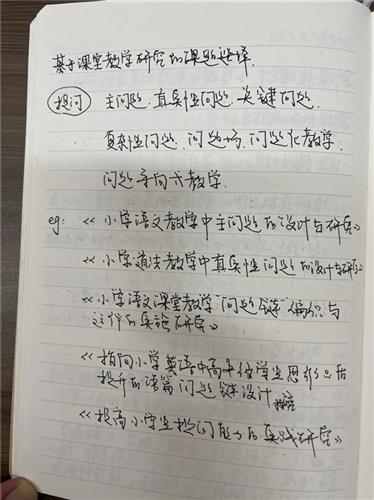 基于课堂教学研究的课题选择
提问 主问题、真实性问题、关键问题、
复杂性问题、问题场、问题化教学、
问题导向式教学.
eg: 《小学语文教学中主问题的设计与研究》
《小学道法教学中真实性问题的设计与研究》
《小学语文课堂教学"问题链"编织与
的实证研究》
《指向小学英语中高年级学生思维品质
提升的语篇问题链设计
《提高小学生提问能力的实践研究》